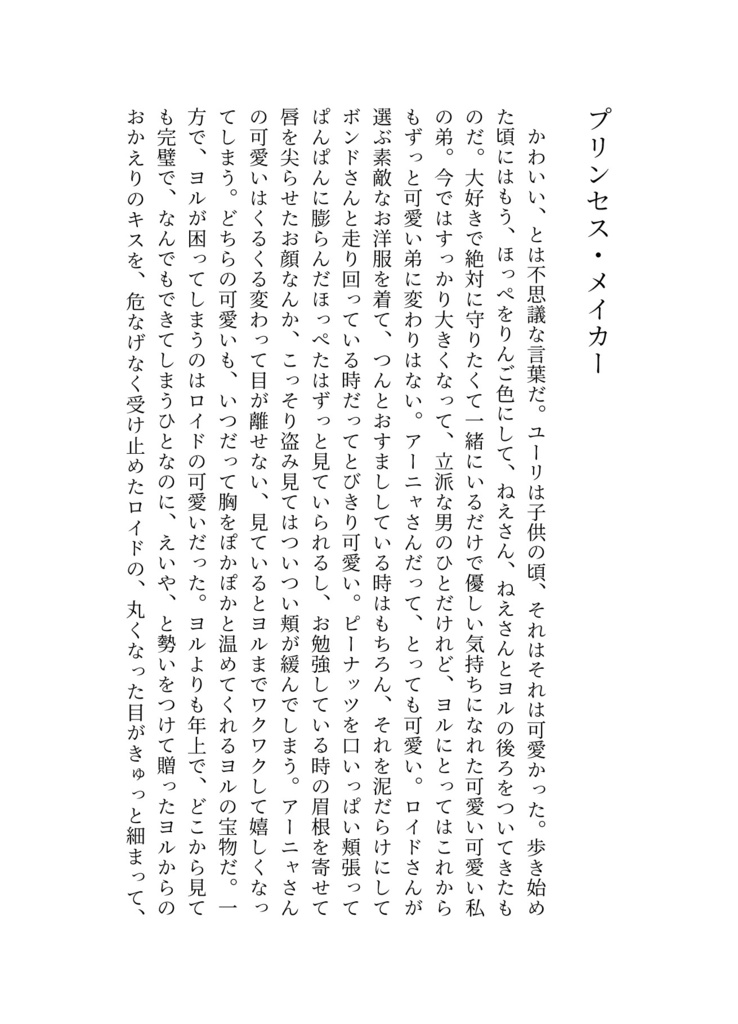 プリンセス・メイカー
かわいい、とは不思議な言葉だ。ユーリは子供の頃、それはそれは可愛かった。歩き始め
た頃にはもう、ほっぺをりんご色にして、ねえさん、ねえさんとヨルの後ろをついてきたも
のだ。大好きで絶対に守りたくて一緒にいるだけで優しい気持ちになれた可愛い可愛い私
の弟。今ではすっかり大きくなって、立派な男のひとだけれど、ヨルにとってはこれから
もずっと可愛い弟に変わりはない。アーニャさんだって、とっても可愛い。ロイドさんが
選ぶ素敵なお洋服を着て、つんとおすまししている時はもちろん、それを泥だらけにして
ボンドさんと走り回っている時だってとびきり可愛い。ピーナッツを口いっぱい頬張って
ぱんぱんに膨らんだほっぺたはずっと見ていられるし、お勉強している時の眉根を寄せて
唇を尖らせたお顔なんか、こっそり盗み見てはついつい頬が緩んでしまう。アーニャさん
の可愛いはくるくる変わって目が離せない、見ているとヨルまでワクワクして嬉しくなっ
てしまう。どちらの可愛いも、いつだって胸をぽかぽかと温めてくれるヨルの宝物だ。一
方で、ヨルが困ってしまうのはロイドの可愛いだった。ヨルよりも年上で、どこから見て
も完璧で、なんでもできてしまうひとなのに、えいや、と勢いをつけて贈ったヨルからの
おかえりのキスを、危なげなく受け止めたロイドの、丸くなった目がきゅっと細まって、